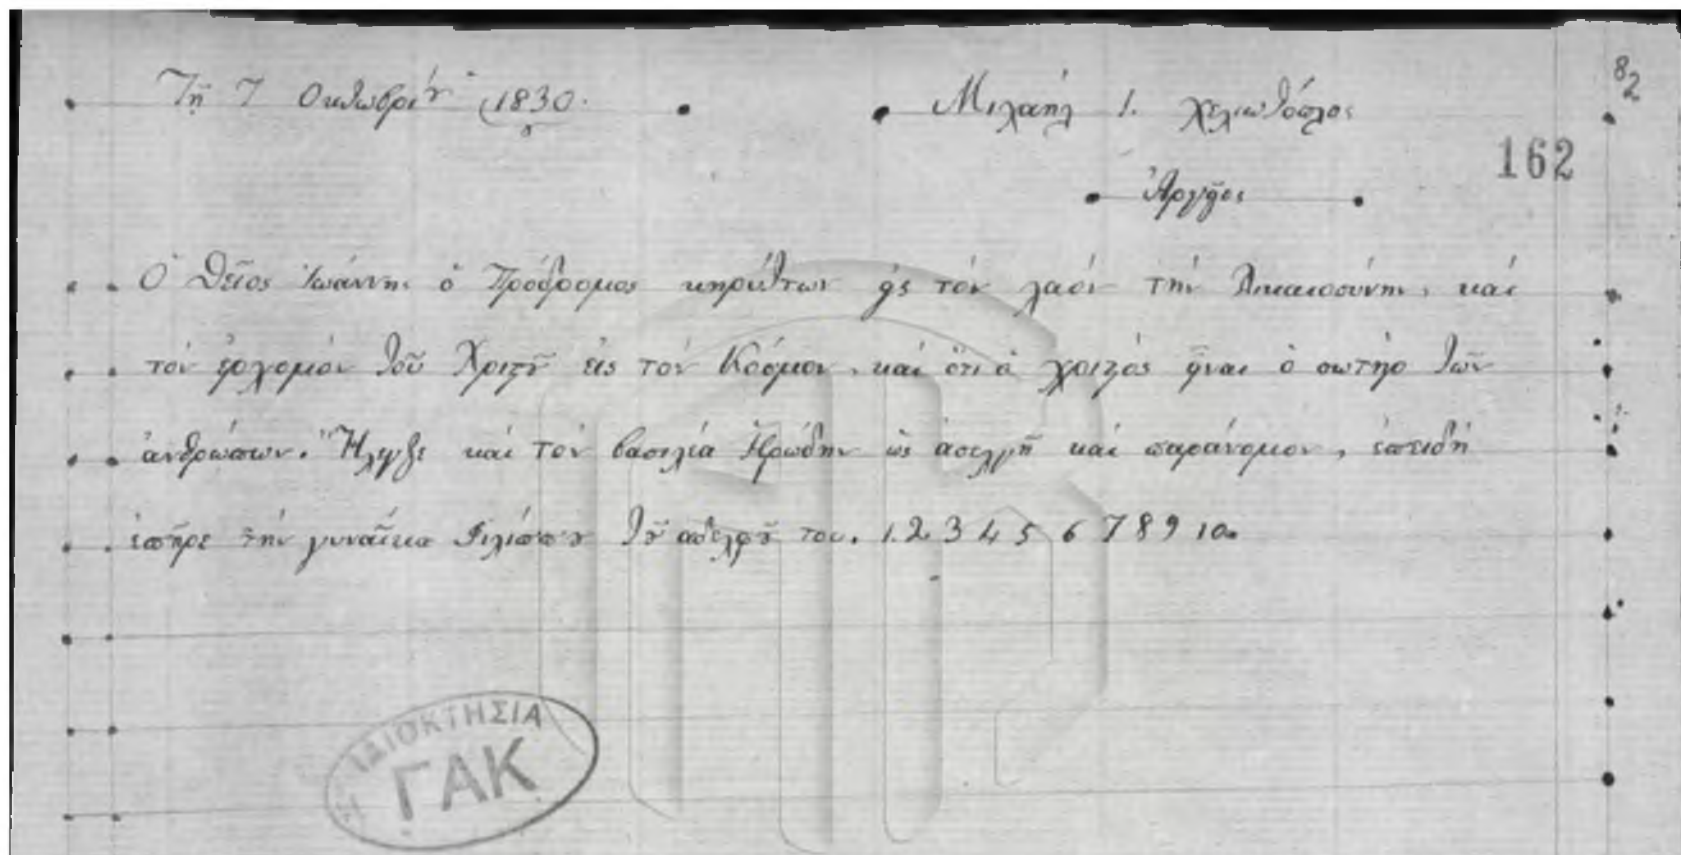 82
Τῇ 7 Ὀκτωβρίου 1830. Μιχαήλ Ι. Χελιωτόπλος
162
Ἀργεῖος
Ὁ Θεῖος Ἰωάννης ὁ Πρόδρομος κηρύττων εἰς τόν λαόν τήν δικαιοσύνην, καί
τόν ἐρχομόν τοῦ Χριστοῦ εἰς τόν Κόσμον, καί ὅτι ὁ χριστός εἶναι ὁ σωτήρ τῶν
ἀνθρώπων. Ἤλεγξε καί τόν βασιλέα Ἡρώδην ὡς ἀσελγῆ καί παράνομον, ἐπειδή
ἐπῆρε τήν γυναῖκα Φιλίππου τοῦ ἀδελφοῦ του. 1 2 3 4 5 6 7 8 9 10.
ΙΔΙΟΚΤΗΣΙΑ
ΓΑΚ